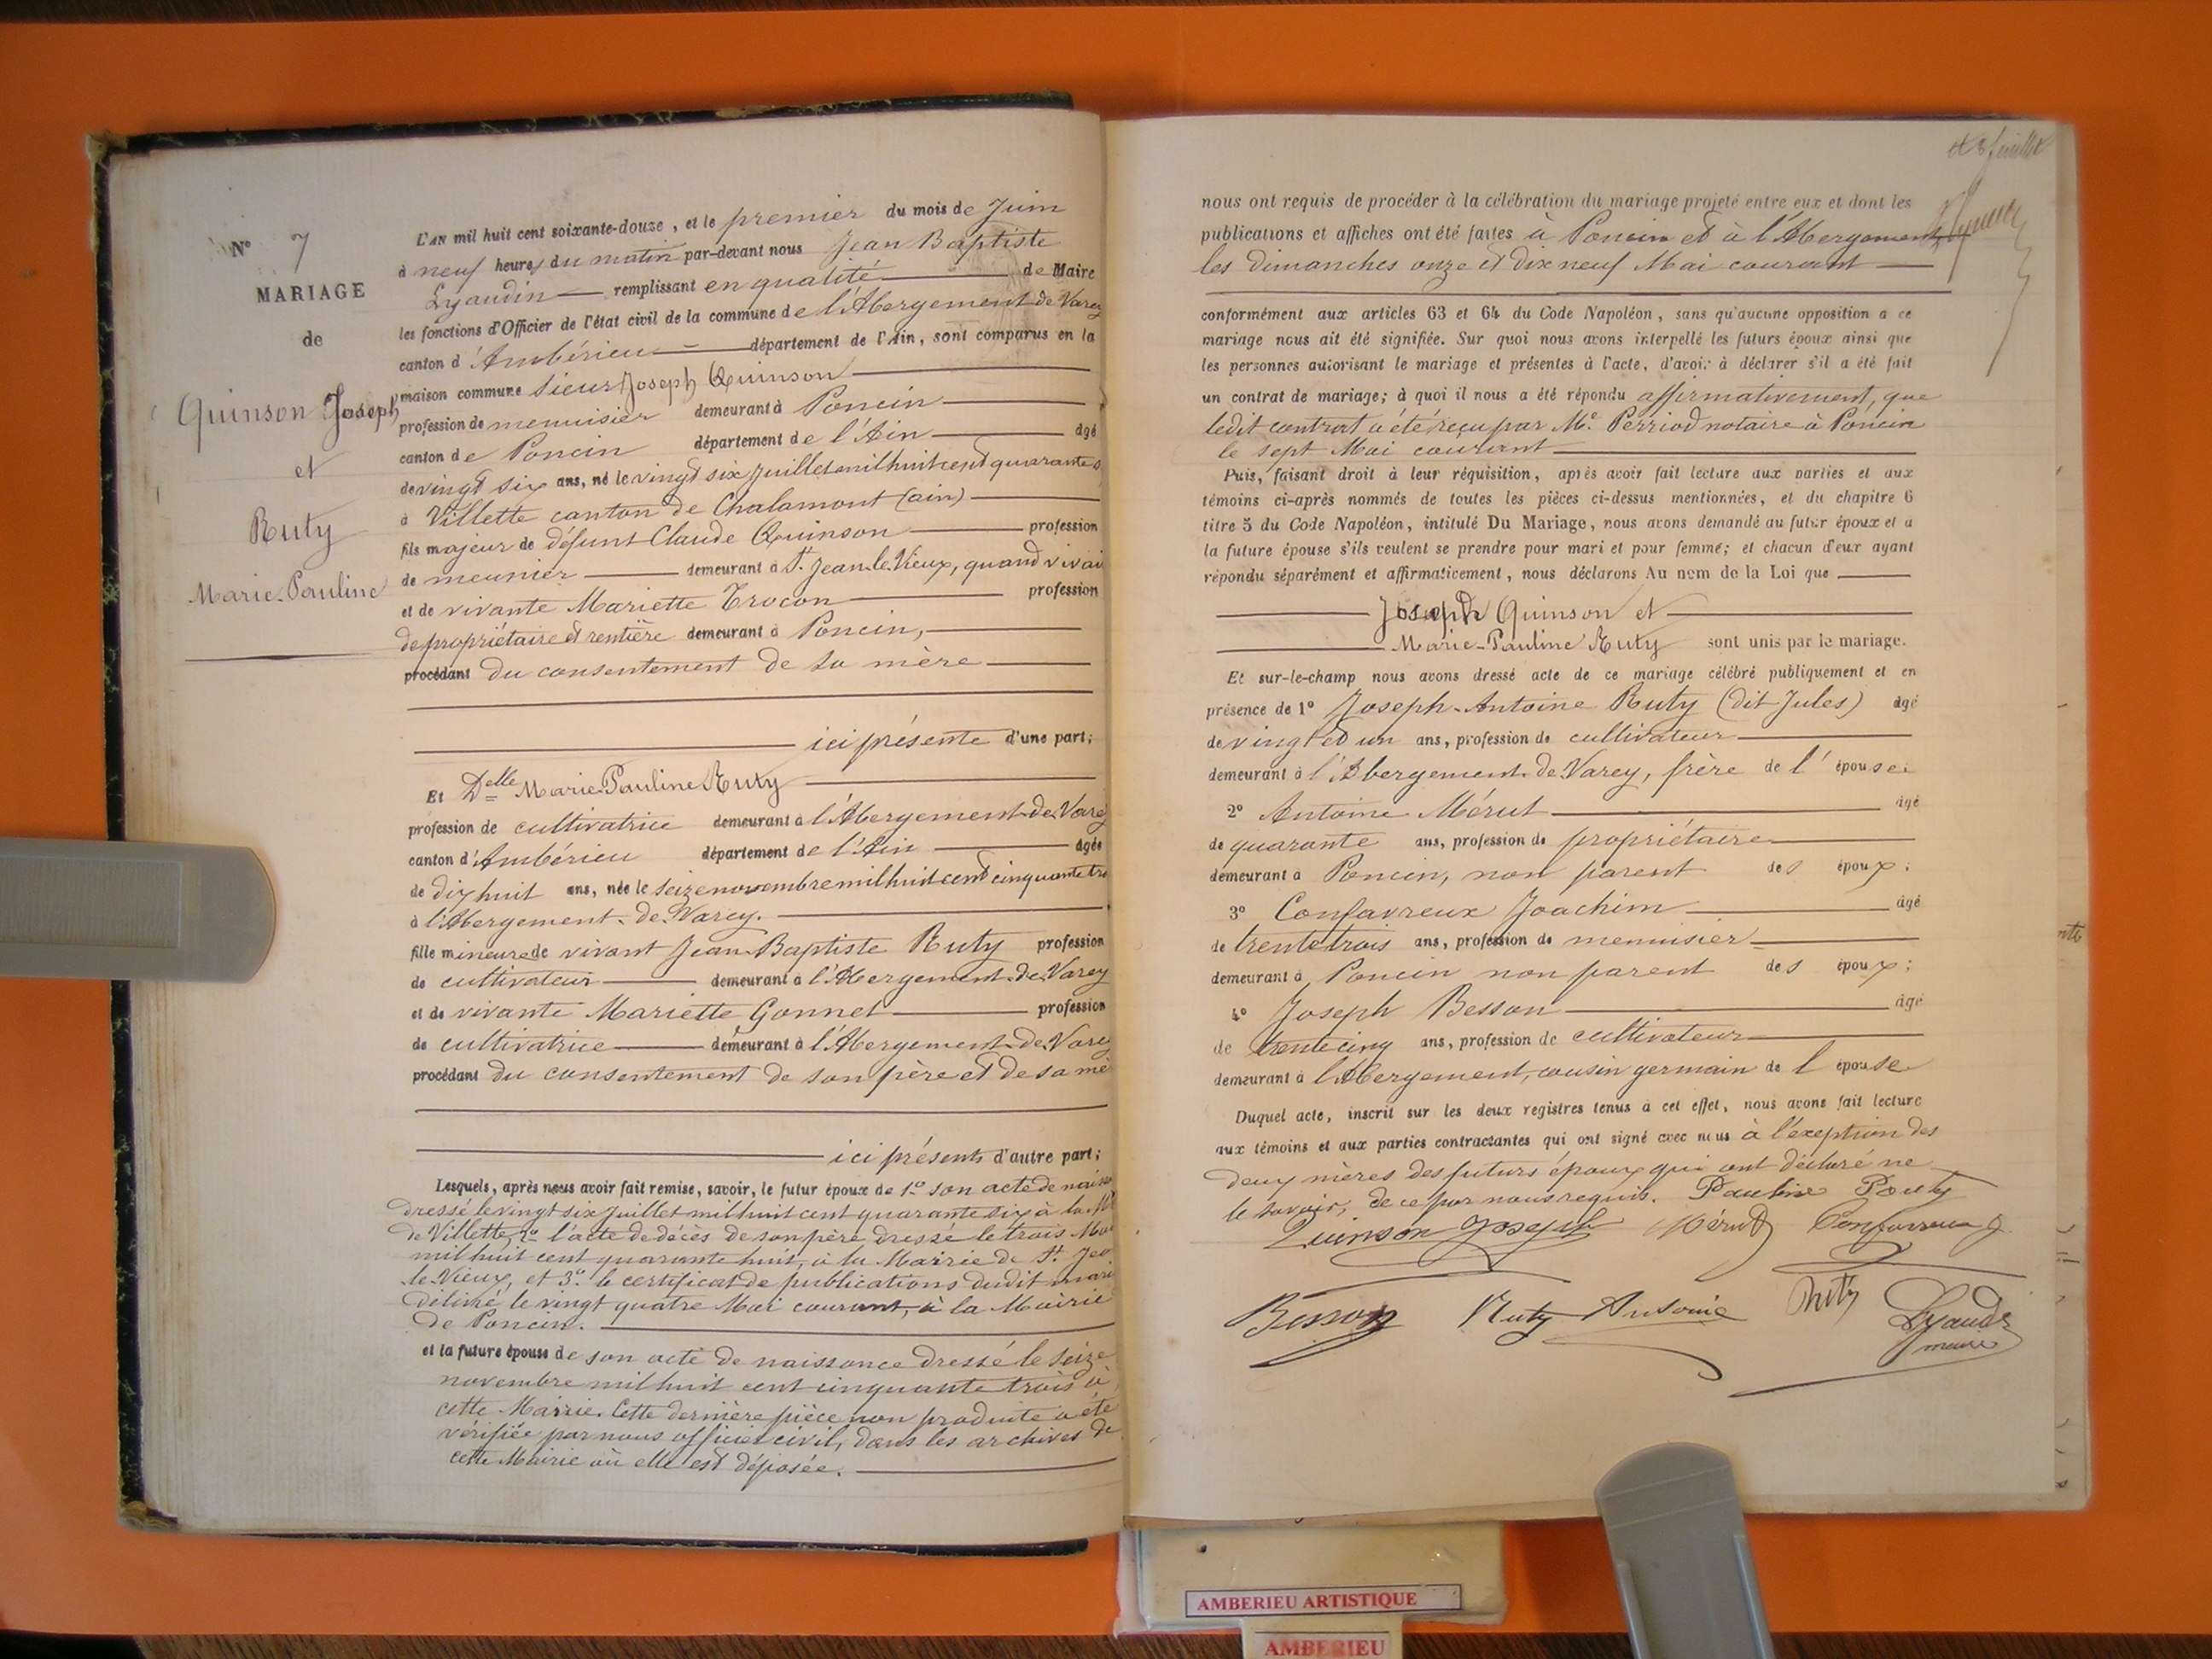 N° 7
MARIAGE
de
Quinson Joseph
et
Ruty
Marie-Pauline
L'AN mil huit cent soixante-douze, et le premier du mois de Juin
à neuf heures du matin par-devant nous Jean Baptiste
Lyaudin remplissant en qualité de Maire
les fonctions d'Officier de l'état civil de la commune de l'Abergement de Varey
canton d'Ambérieu département de l'Ain, sont comparus en la
maison commune Sieur Joseph Quinson
profession de menuisier demeurant à Poncin
canton de Poncin département de l'Ain âgé
de vingt six ans, né le vingt six Juillet mil huit cent quarante s
à Villette canton de Chalamont (ain)
fils majeur de défunt Claude Quinson profession
de meunier demeurant à St. Jean-le-Vieux, quand vivai
et de vivante Mariette Trocon profession
de propriétaire et rentière demeurant à Poncin,
procédant du consentement de sa mère
ici présente d'une part;
Et Delle Marie-Pauline Ruty
profession de cultivatrice demeurant à l'Abergement-de-Varey
canton d'Ambérieu département de l'Ain âgée
de dix huit ans, née le seize novembre mil huit cent cinquante tro
à l'Abergement-de-Varey.
fille mineure de vivant Jean-Baptiste Ruty profession
de cultivateur demeurant à l'Abergement-de-Varey
et de vivante Mariette Gonnet profession
de cultivatrice demeurant à l'Abergement-de-Varey
procédant du consentement de son père et de sa mè
ici présents d'autre part;
Lesquels, après nous avoir fait remise, savoir, le futur époux de 1° son acte de naiss
dressé le vingt six Juillet mil huit cent quarante six à la M
de Villette, 2° l'acte de décès de son père dressé le trois Ma
mil huit cent quarante huit, à la Mairie de St. Jea
le Vieux, et 3° le certificat de publications dudit mari
délivré le vingt quatre Mai courant, à la Mairie
de Poncin.
et la future épouse de son acte de naissance dressé le seize
novembre mil huit cent cinquante trois à
cette Mairie. Cette dernière pièce non produite a été
vérifiée par nous officier civil, dans les archives de
cette Mairie où elle est déposée.
nous ont requis de procéder à la célébration du mariage projeté entre eux et dont les
publications et affiches ont été faites à Poncin et à l'Abergement
les dimanches onze et dix neuf Mai courant
conformément aux articles 63 et 64 du Code Napoléon, sans qu'aucune opposition a ce
mariage nous ait été signifiée. Sur quoi nous avons interpellé les futurs époux ainsi que
les personnes autorisant le mariage et présentes à l'acte, d'avoir à déclarer s'il a été fait
un contrat de mariage; à quoi il nous a été répondu affirmativement, que
ledit contrat a été reçu par Me. Perriod notaire à Poncin
le sept Mai courant
Puis, faisant droit à leur réquisition, après avoir fait lecture aux parties et aux
témoins ci-après nommés de toutes les pièces ci-dessus mentionnées, et du chapitre 6
titre 5 du Code Napoléon, intitulé Du Mariage, nous avons demandé au futur époux et a
la future épouse s'ils veulent se prendre pour mari et pour femme; et chacun d'eux ayant
répondu séparément et affirmativement, nous déclarons Au nom de la Loi que
Joseph Quinson et
Marie-Pauline Ruty sont unis par le mariage.
Et sur-le-champ nous avons dressé acte de ce mariage célébré publiquement et en
présence de 1° Joseph-Antoine Ruty (dit Jules) âgé
de vingt et un ans, profession de cultivateur
demeurant à l'Abergement-de-Varey, frère de l'épouse.
2° Antoine Mérut âgé
de quarante ans, profession de propriétaire
demeurant à Poncin, non parent des époux;
3° Confavreux Joachim âgé
de trente trois ans, profession de menuisier
demeurant à Poncin non parent des époux;
4° Joseph Besson âgé
de trente cinq ans, profession de cultivateur
demeurant à l'Abergement, cousin germain de l épouse
Duquel acte, inscrit sur les deux registres tenus à cet effet, nous avons fait lecture
aux témoins et aux parties contractantes qui ont signé avec nous à l'exeption des
deux mères des futurs époux qui ont déclaré ne
le savoir, de ce par nous requis. Pauline Routy
Quinson Joseph Mérut Confavreux J
Besson Ruty Antoine Ruty Lyaudin
maire
AMBERIEU ARTISTIQUE
AMBERIEU